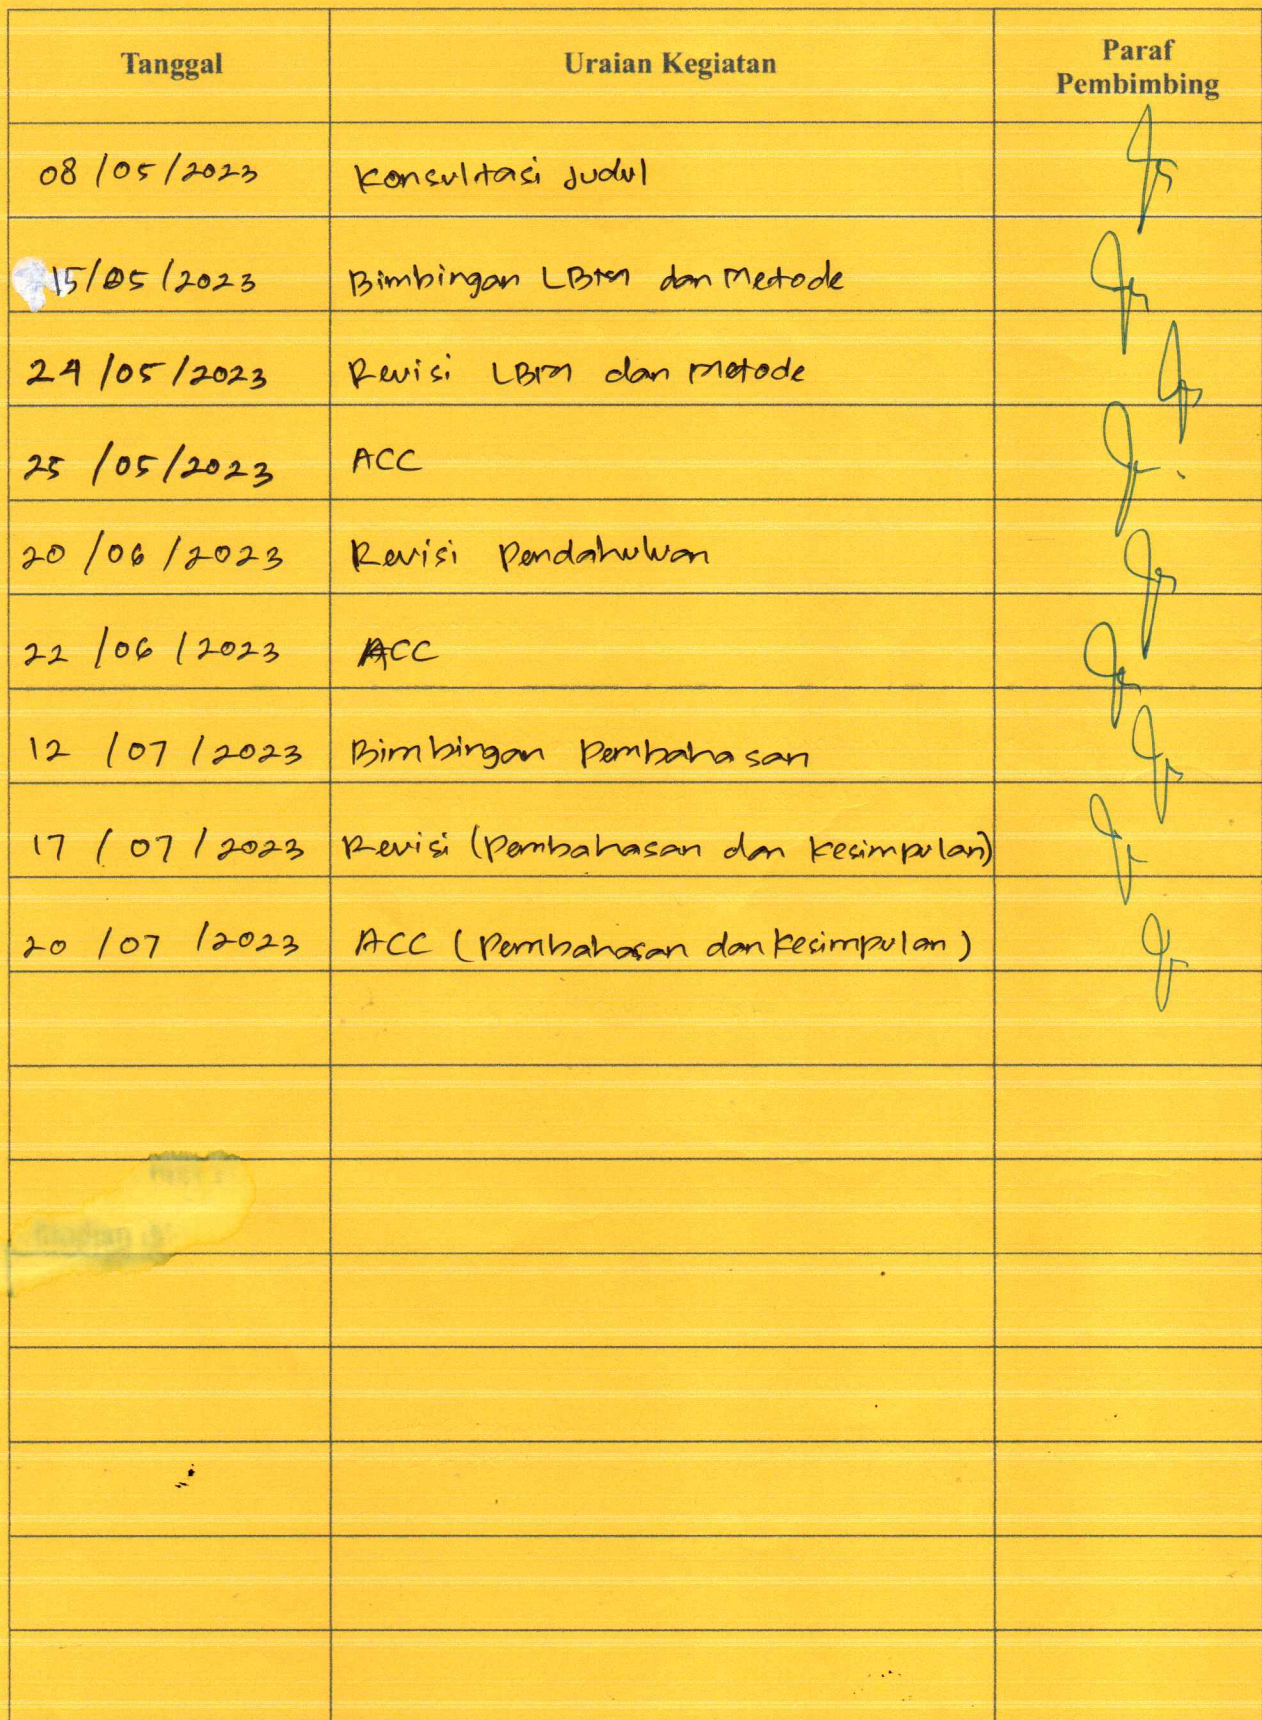 Tanggal Uraian Kegiatan Paraf
Pembimbing
08/05/2023 Konsultasi Judul
15/05/2023 Bimbingan LBM dan Metode
24/05/2023 Revisi LBM dan Metode
25/05/2023 ACC
20/06/2023 Revisi Pendahuluan
22/06/2023 ACC
12/07/2023 Bimbingan Pembahasan
17/07/2023 Revisi (Pembahasan dan Kesimpulan)
20/07/2023 ACC (Pembahasan dan Kesimpulan)